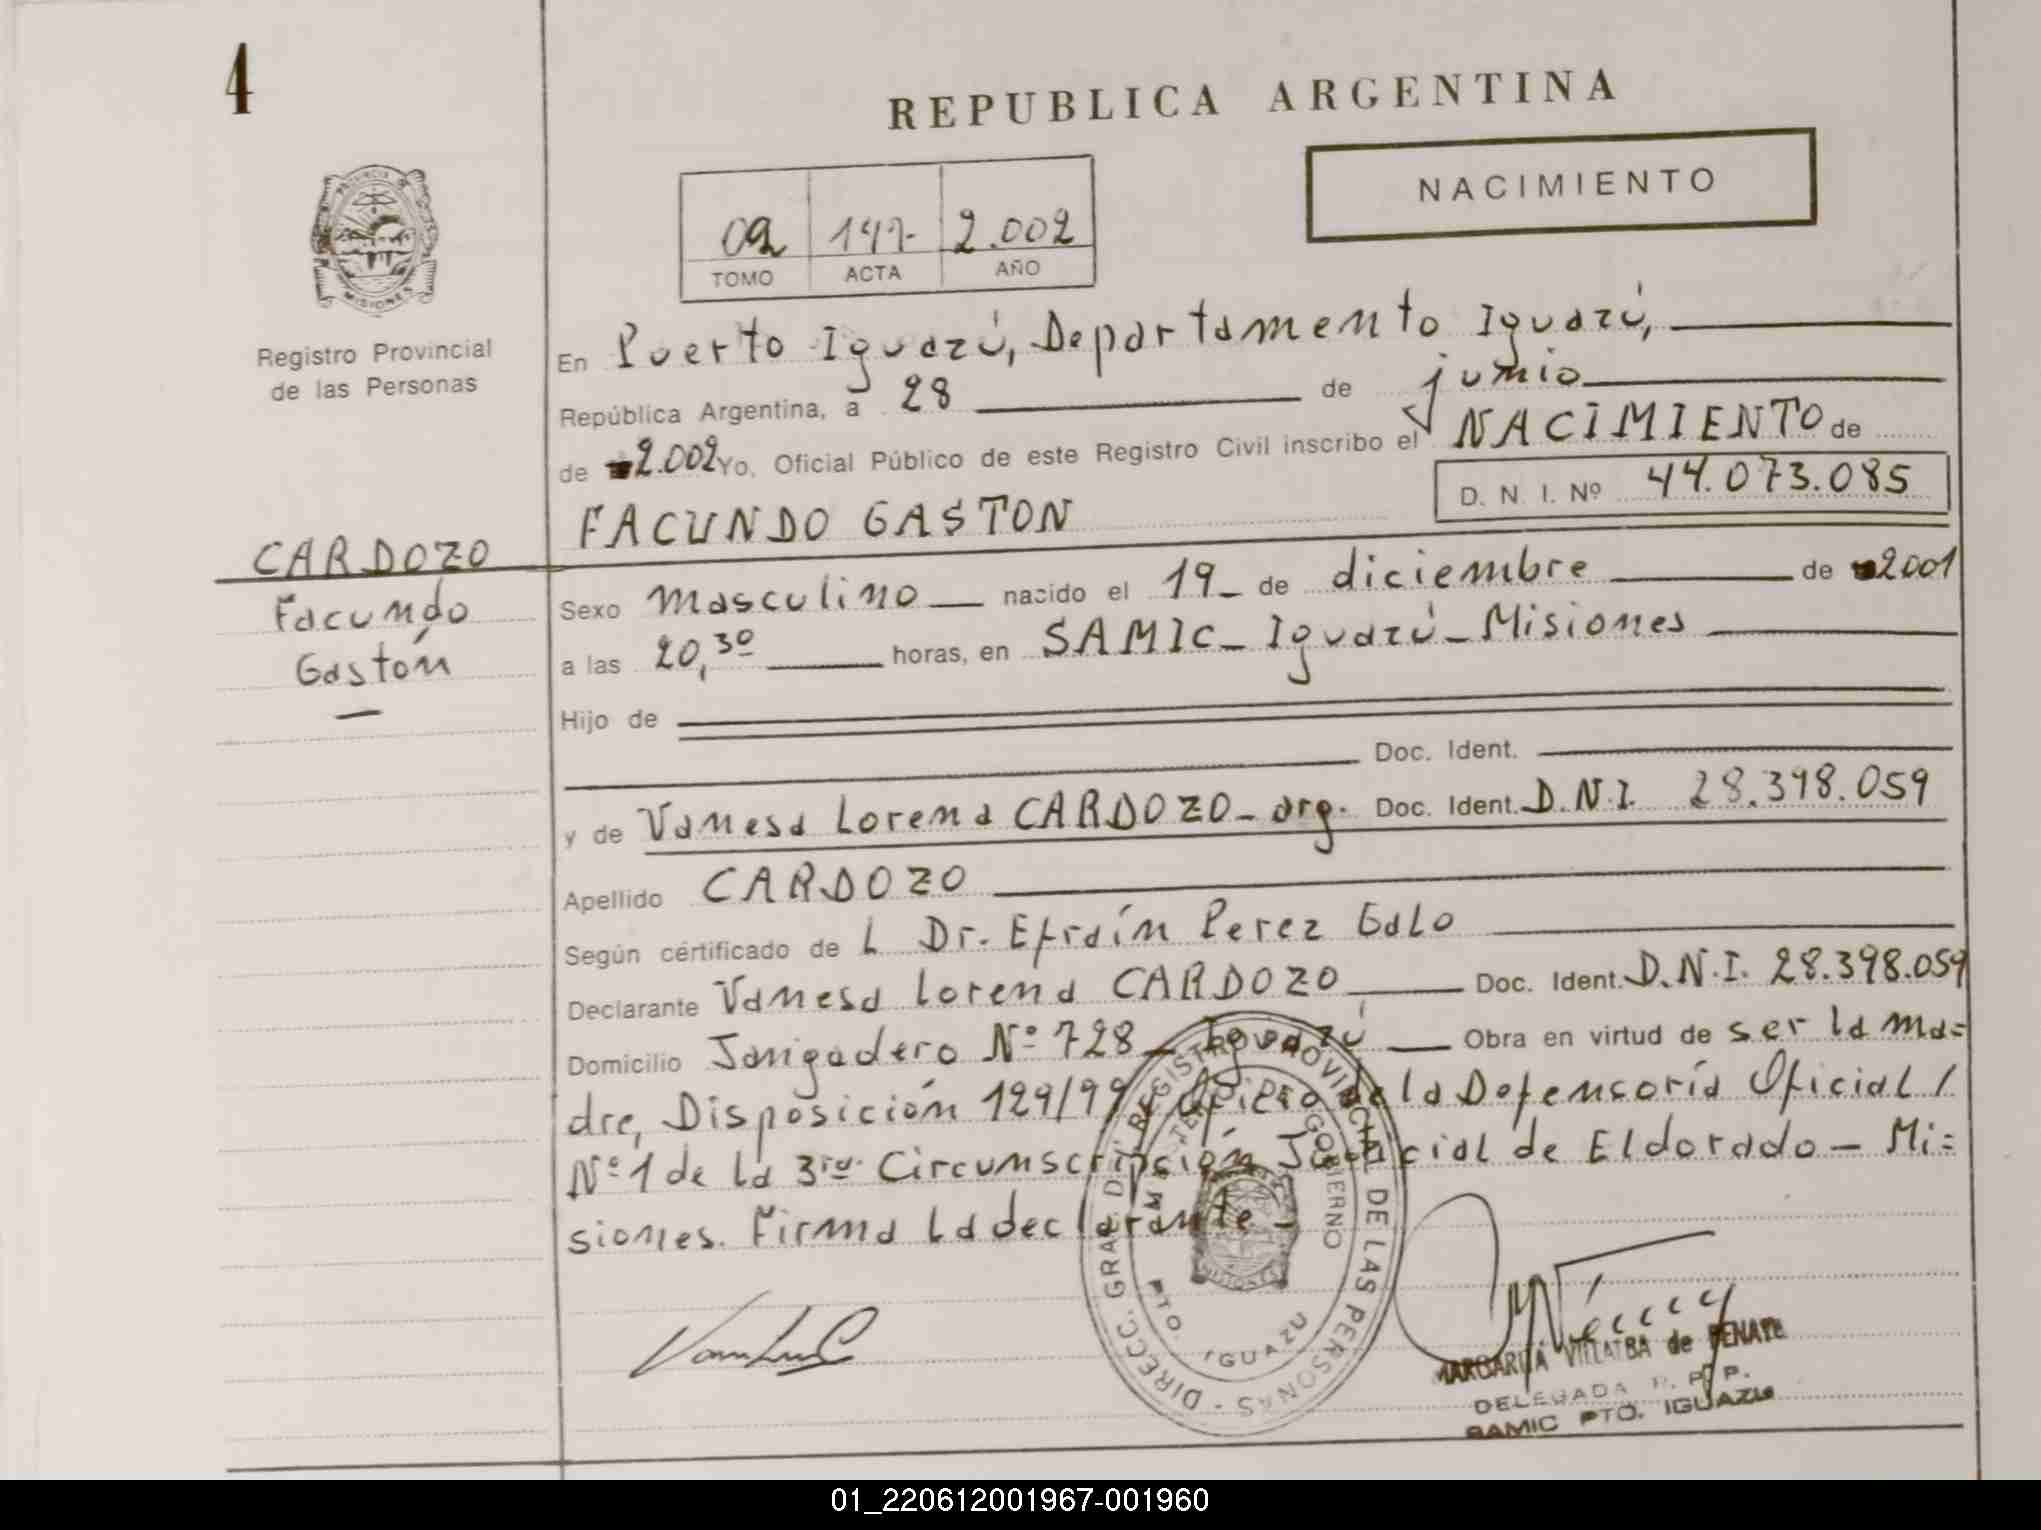 4
REPUBLICA ARGENTINA
NACIMIENTO
02 2.002
TOMO ACTA AÑO
PROVINCIA DE
MISIONES
Registro Provincial
de las Personas
En Puerto Iguazú, Departamento Iguazú,
República Argentina, a 28 de junio
de 2.002 Yo, Oficial Público de este Registro Civil inscribo el NACIMIENTO de
D. N. I. Nº 44.073.085
FACUNDO GASTON
CARDOZO
Facundo
Gastón
Sexo masculino nacido el 19 de diciembre de 2001
a las 20,30 horas, en SAMIC - Iguazú - Misiones
Hijo de
Doc. Ident.
y de Vanesa Lorena CARDOZO - arg. Doc. Ident. D.N.I. 28.398.059
Apellido CARDOZO
Según cértificado de L Dr. Efraín Perez Galo
Declarante Vanesa Lorena CARDOZO Doc. Ident. D.N.I. 28.398.059
Domicilio Jangadero Nº 728 - Iguazú Obra en virtud de ser la ma=
dre, Disposición 129/99, Oficio de la Defensoría Oficial /
Nº 1 de la 3ra. Circunscripción Judicial de Eldorado - Mi=
siones. Firma la declarante -
DIRECC. GRAL. D' REGISTRO PROVINCIAL DE LAS PERSONAS
GOBIERNO
PTO. IGUAZU
MARGARITA VILLALBA de
DELEGADA R. P. P.
SAMIC PTO. IGUAZU
01_220612001967-001960